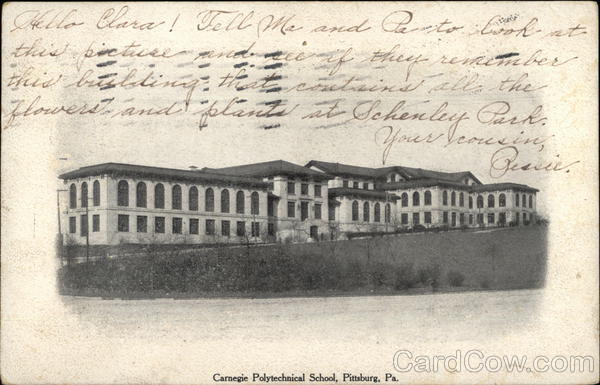 Hello Clara! Tell Ma and Pa to look at
this picture and see if they remember
this building that contains all the
flowers and plants at Schenley Park.
Your cousin,
Bessie.
Carnegie Polytechnical School, Pittsburg, Pa.
CardCow.com